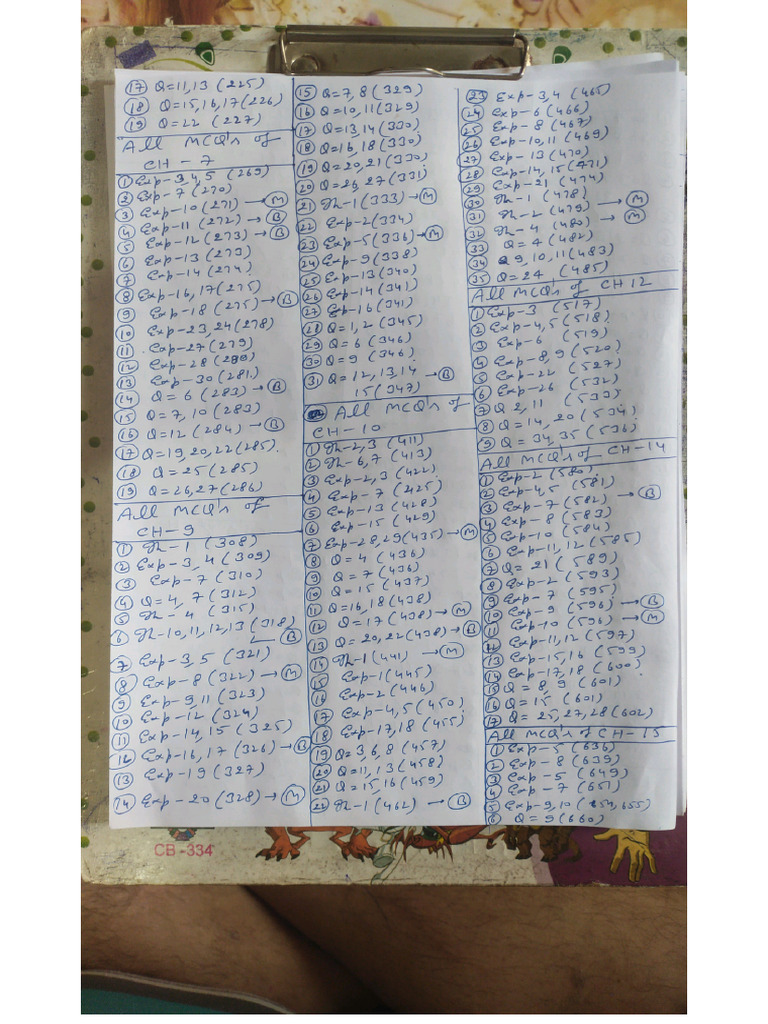 ⑰ Q=11,13 (225)
⑱ Q=15,16,17 (226)
⑲ Q=22 (227)
All MCQ's of
CH-7
① Exp-3,4,5 (269)
② Exp-7 (270)
③ Exp-10 (271) → Ⓜ
④ Exp-11 (272) → Ⓑ
⑤ Exp-12 (273) → Ⓑ
⑥ Exp-13 (273)
⑦ Exp-14 (274)
⑧ Exp-16,17 (275)
⑨ Exp-18 (275) → Ⓑ
⑩ Exp-23,24 (278)
⑪ Exp-27 (279)
⑫ Exp-28
⑬ Exp-30 (281)
⑭ Q=6 (283) → Ⓑ
⑮ Q=7,10 (283)
⑯ Q=12 (284) → Ⓑ
⑰ Q=19,20,22 (285)
⑱ Q=25 (285)
⑲ Q=26,27 (286)
All MCQ's of
CH-9
① Th-1 (308)
② Exp-3,4 (309)
③ Exp-7 (310)
④ Q=4,7 (312)
⑤ Th-4 (315)
⑥ Th-10,11,12,13 (318)
Ⓑ
⑦ Exp-3,5 (321)
⑧ Exp-8 (322) → Ⓜ
⑨ Exp-9,11 (323)
⑩ Exp-12 (324)
⑪ Exp-14,15 (325)
⑫ Exp-16,17 (326) → Ⓑ
⑬ Exp-19 (327)
⑭ Exp-20 (328) → Ⓜ
⑮ Q=7,8 (329)
⑯ Q=10,11 (329)
⑰ Q=13,14 (330)
⑱ Q=16,18 (330)
⑲ Q=20,21 (330)
⑳ Q=26,27 (331)
㉑ Th-1 (333) → Ⓜ
㉒ Exp-2 (334)
㉓ Exp-5 (336) → Ⓜ
㉔ Exp-9 (338)
㉕ Exp-13 (340)
㉖ Exp-14 (341)
㉗ Exp-16 (341)
㉘ Q=1,2 (345)
㉙ Q=6 (346)
㉚ Q=9 (346)
㉛ Q=12,13,14 → Ⓑ
15 (347)
All MCQ's of
CH-10
① Th-2,3 (411)
② Th-6,7 (413)
③ Exp-2,3 (422)
④ Exp-7 (425)
⑤ Exp-13 (428)
⑥ Exp-15 (429)
⑦ Exp-28,29 (435) → Ⓜ
⑧ Q=4 (436)
⑨ Q=7 (436)
⑩ Q=15 (437)
⑪ Q=16,18 (438)
⑫ Q=17 (438) → Ⓜ
⑬ Q=20,22 (438) → Ⓑ
⑭ Th-1 (441) → Ⓜ
⑮ Exp-1 (445)
⑯ Exp-2 (446)
⑰ Exp-4,5 (450)
⑱ Exp-17,18 (455)
⑲ Q=3,6,8 (457)
⑳ Q=11,13 (458)
㉑ Q=15,16 (459)
㉒ Th-1 (462) → Ⓑ
㉓ Exp-3,4 (465)
㉔ Exp-6 (466)
㉕ Exp-8 (467)
㉖ Exp-10,11 (469)
㉗ Exp-13 (470)
㉘ Exp-14,15 (471)
㉙ Exp-21 (474)
㉚ Th-1 (478)
㉛ Th-2 (479) → Ⓜ
㉜ Th-4 (480) → Ⓜ
㉝ Q=4 (482)
㉞ Q9,10,11 (483)
㉟ Q=24 (485)
All MCQ's of CH 12
① Exp-3 (517)
② Exp-4,5 (518)
③ Exp-6 (519)
④ Exp-8,9 (520)
⑤ Exp-22 (527)
⑥ Exp-26 (532)
⑦ Q 2,11 (533)
⑧ Q=14,20 (534)
⑨ Q=34,35 (536)
All MCQ's of CH-14
① Exp-2 (580)
② Exp-4,5 (581)
③ Exp-7 (582) → Ⓑ
④ Exp-8 (583)
⑤ Exp-10 (584)
⑥ Exp-11,12 (585)
⑦ Q=21 (589)
⑧ Exp-2 (593)
⑨ Exp-7 (595)
⑩ Exp-9 (596) → Ⓑ
⑪ Exp-10 (596) → Ⓜ
⑫ Exp-11,12 (597)
⑬ Exp-15,16 (599)
⑭ Exp-17,18 (600)
⑮ Q=8,9 (601)
⑯ Q=15 (601)
⑰ Q=25,27,28 (602)
All MCQ's of CH-15
① Exp-5 (636)
② Exp-8 (639)
③ Exp-5 (649)
④ Exp-7 (651)
⑤ Exp-9,10 (654,655)
⑥ Q=9 (660)
CB-334